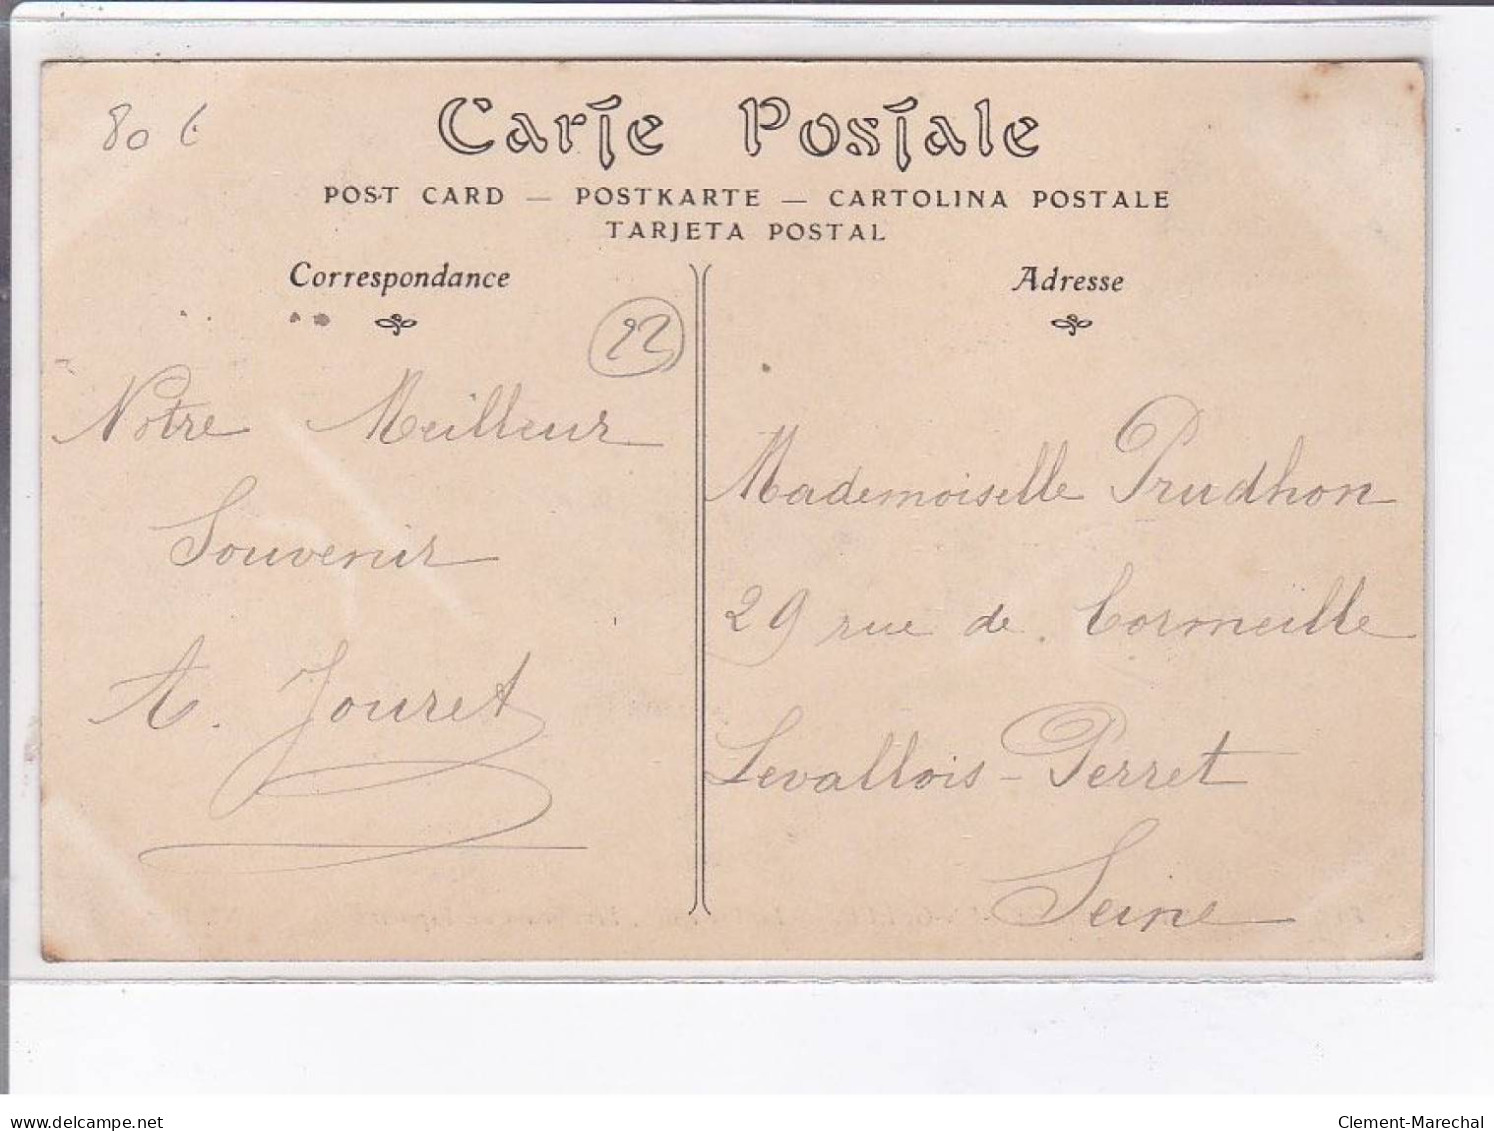 80 €
Carte Postale
POST CARD — POSTKARTE — CARTOLINA POSTALE
TARJETA POSTAL
Correspondance
22
Notre Meilleur
Souvenir
A. Jouret
Adresse
Mademoiselle Prudhon
29 rue de Cormeille
Levallois-Perret
Seine
delcampe.net
Clement-Marechal